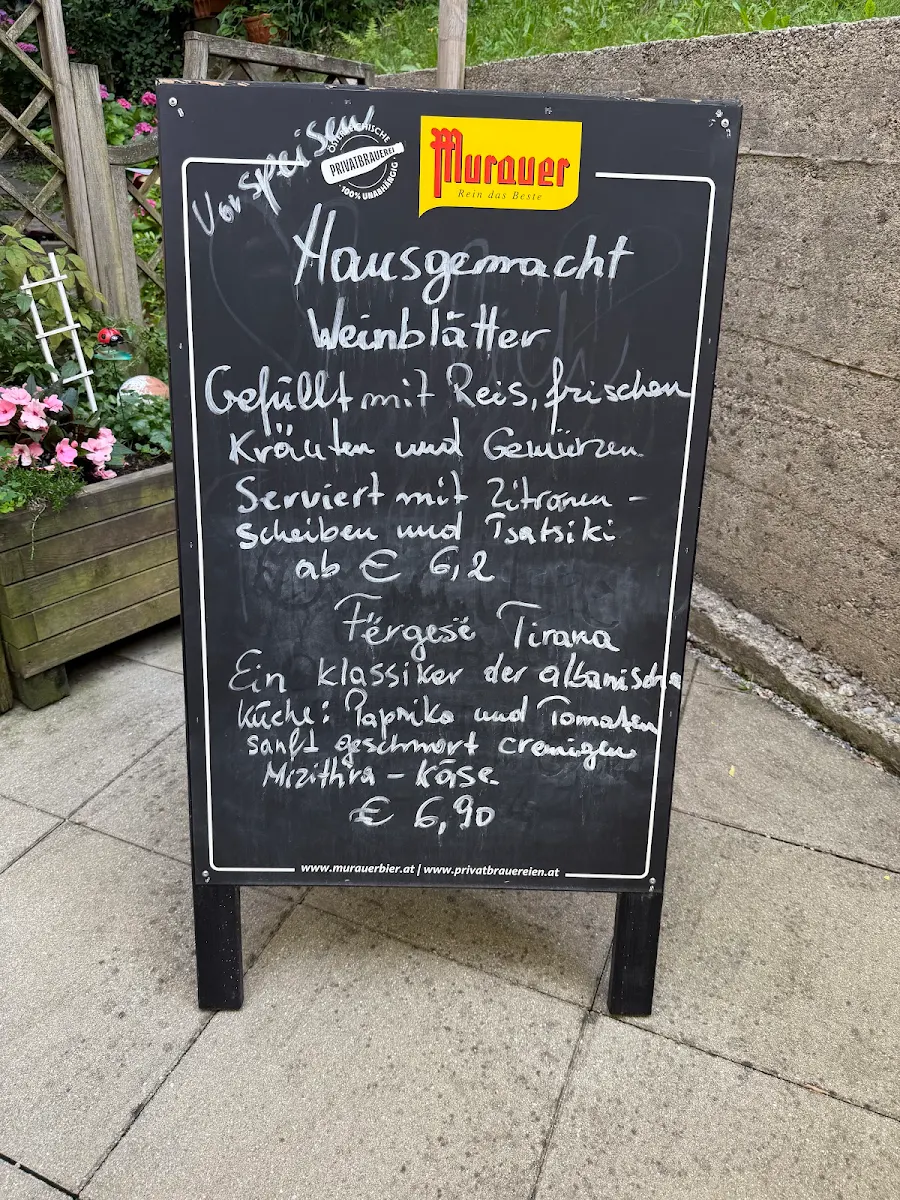 Vorspeisen
ÖSTERREICHISCHE
PRIVATBRAUEREI
100% UNABHÄNGIG
Murauer
Rein das Beste
Hausgemacht
Weinblätter
Gefüllt mit Reis, frischen
Kräuten und Gewürzen
Serviert mit Zitronen -
scheiben und Tsatsiki
ab € 6,2
Fërgesë Tirana
Ein klassiker der albanische
küche: Paprika und Tomaten
sanft geschmort cremigen
Mizithra - käse
€ 6,90
www.murauerbier.at | www.privatbrauereien.at